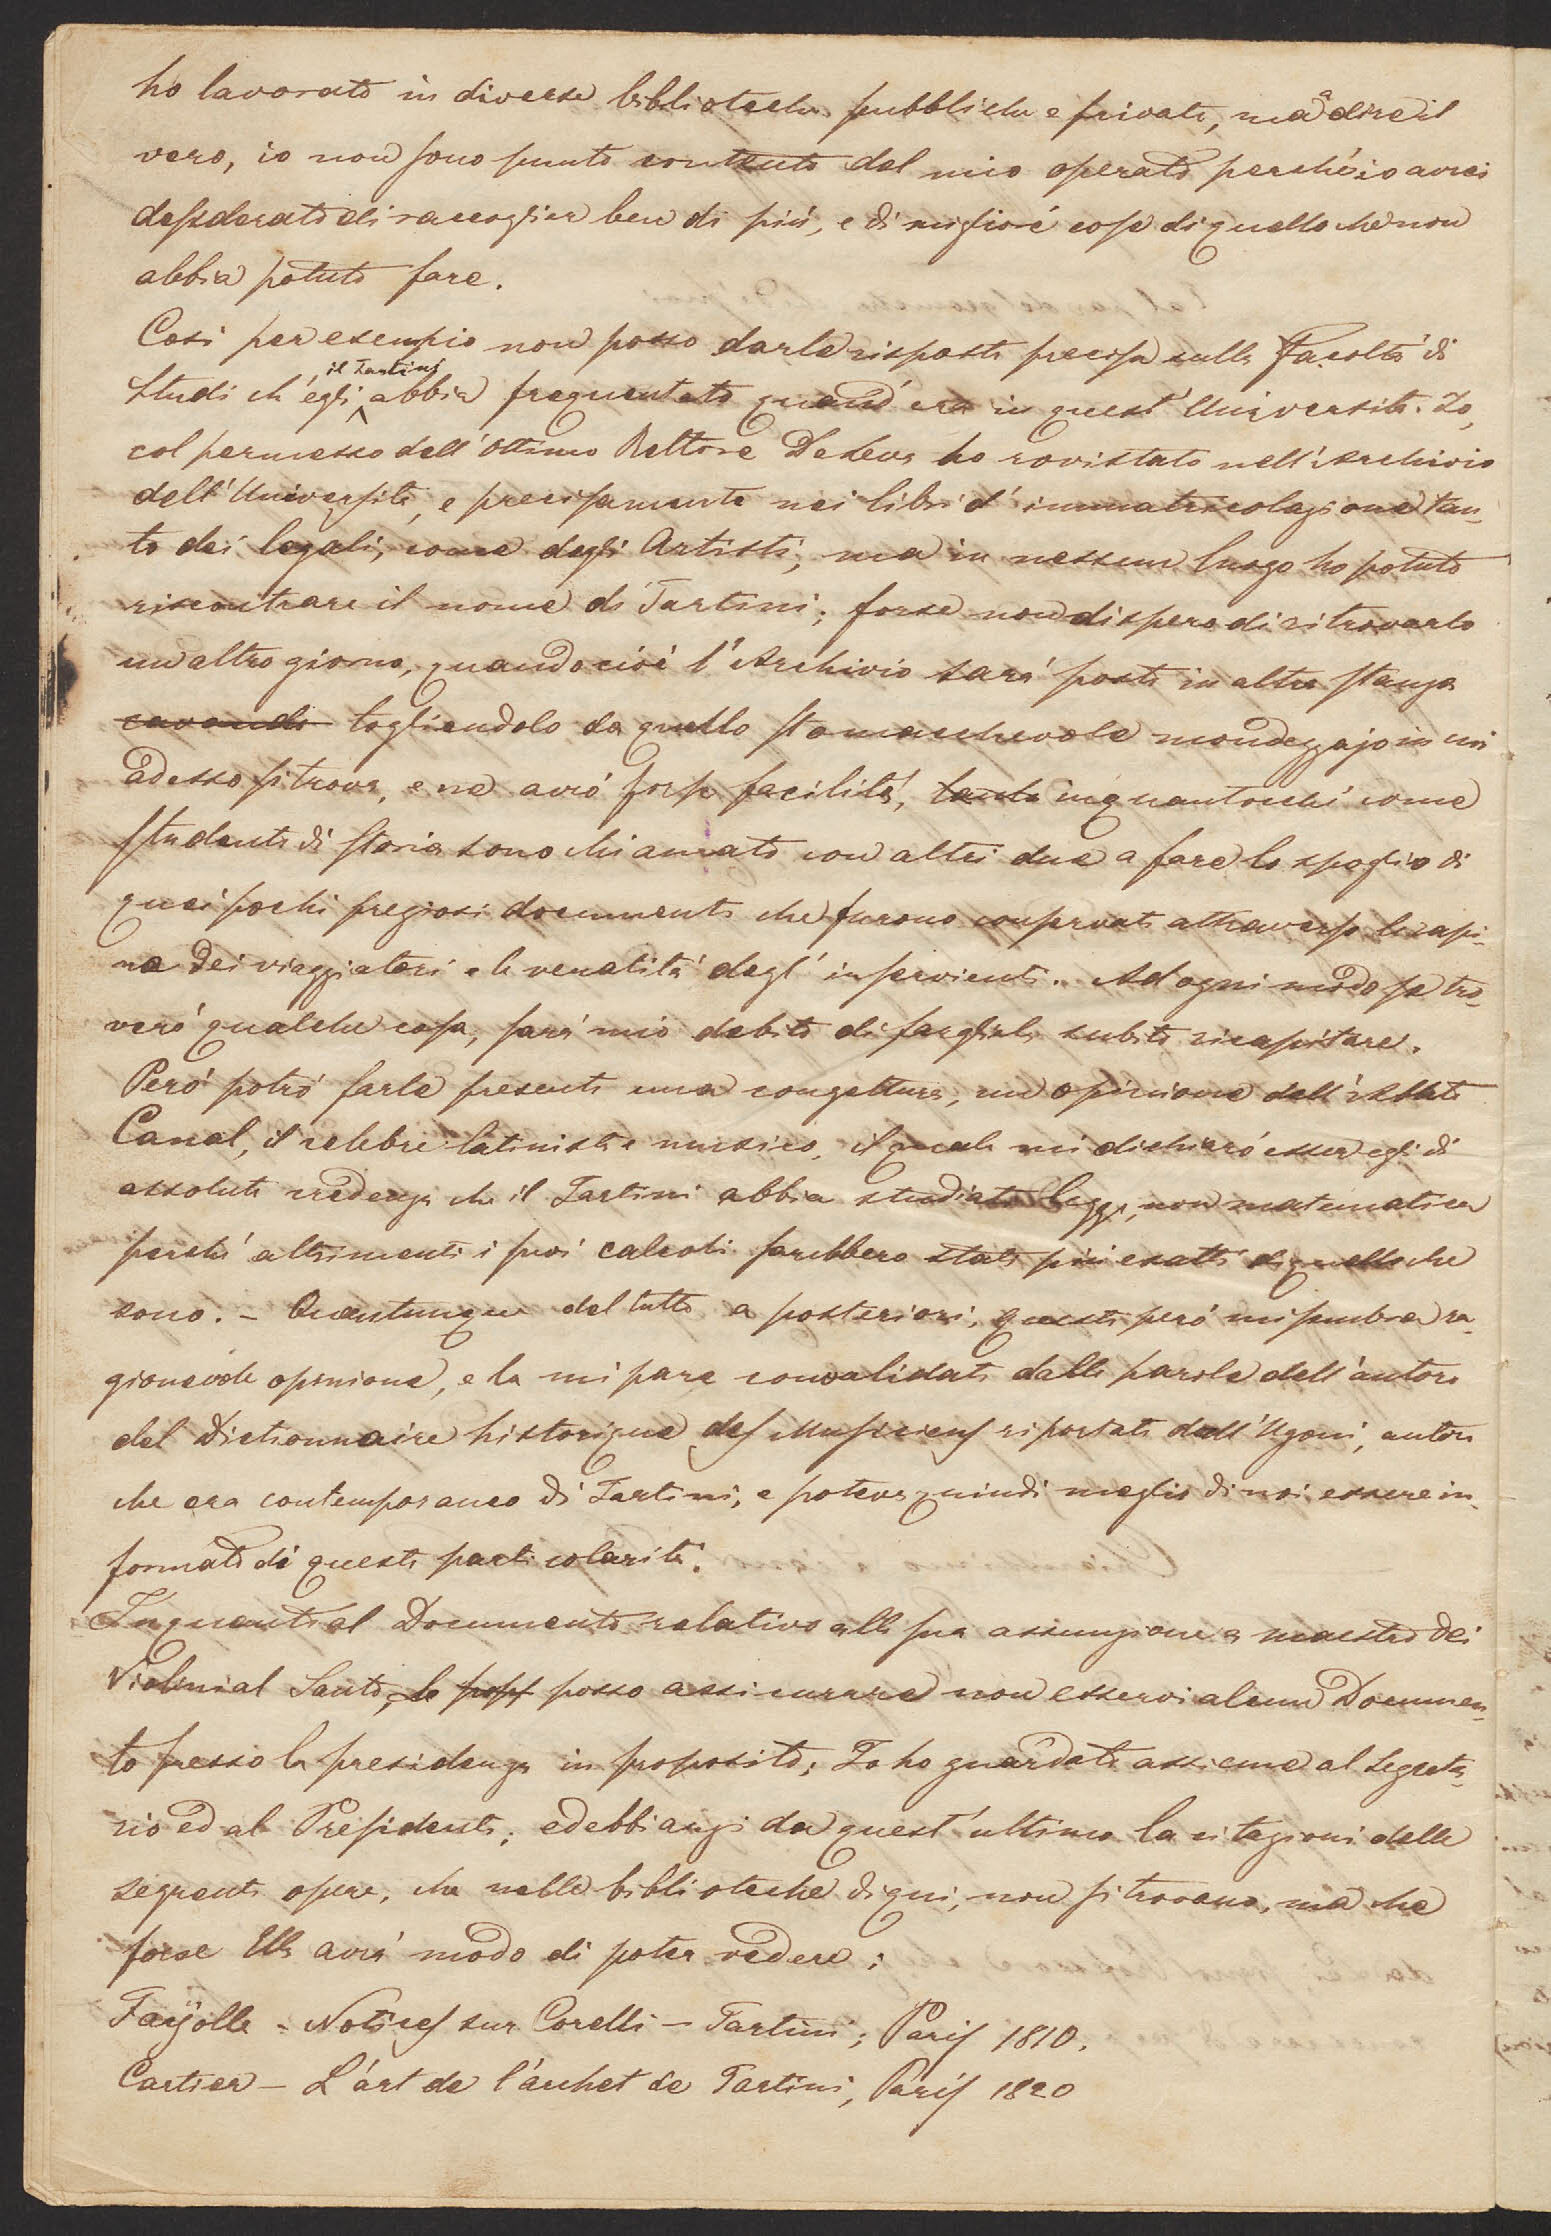 ho lavorato in diverse biblioteche pubbliche e private, ma a dire il
vero, io non sono punto contento del mio operato perché io avrei
desiderato di raccoglier ben di più, e di migliori cose di quello che non
abbia potuto fare.
Così per esempio non posso darle risposta precisa sulla Facoltà di
il Tartini
Studi ch'egli abbia frequentato quand'era in quest'Università. Io,
col permesso dell'ottimo Rettore De Leva ho rovistato nell'Archivio
dell'Università, e precisamente nei libri d'immatricolazione tan-
to dei legali, come degli Artisti, ma in nessun luogo ho potuto
riscontrare il nome di Tartini; forse non dispero di ritrovarlo
un altro giorno, quando cioè l'Archivio sarà posto in altra stanza
cavando togliendolo da quello stomachevole mondezzajo in cui
adesso si trova, e ne avrò forse facilità, tanto inquantoché come
studente di storia sono chiamato con altri due a fare lo spoglio di
quei pochi preziosi documenti che furono conservati attraverso la rapi-
na dei viaggiatori e la venalità degl'inservienti. Ad ogni modo se tro-
verò qualche cosa, sarà mio debito di fargliela subito ricapitare.
Però potrò farle presente una congettura, un opinione dell'Abate
Canal, il celebre latinista e musico, il quale mi dichiarò esser egli di
assoluta credenza che il Tartini abbia studiato legge, non matematica
perché altrimenti i suoi calcoli sarebbero stati più esatti di quello che
sono. - Quantunque del tutto a posteriori, questa però mi sembra ra-
gionevole opinione, e la mi pare convalidata dalle parole dell'autore
del Dictionnaire historique des Musiciens riportate dall'Ugoni, autore
che era contemporaneo di Tartini, e poteva quindi meglio di noi essere in-
formato di queste particolarità.
Inquanto al Documento relativo alla sua assunzione a maestro dei
Violini al Santo, le poss posso assicurare non esservi alcun Documen-
to presso la presidenza in proposito; Io ho guardato assieme al Segreta-
rio ed al Presidente; ed ebbi anzi da quest'ultimo la citazioni delle
seguenti opere, che nelle biblioteche di qui, non si trovano, ma che
forse Ella avrà modo di poter vedere:
Fayolle - Notices sur Corelli - Tartini; Paris 1810.
Cartier - L'art de l'archet de Tartini, Paris 1820